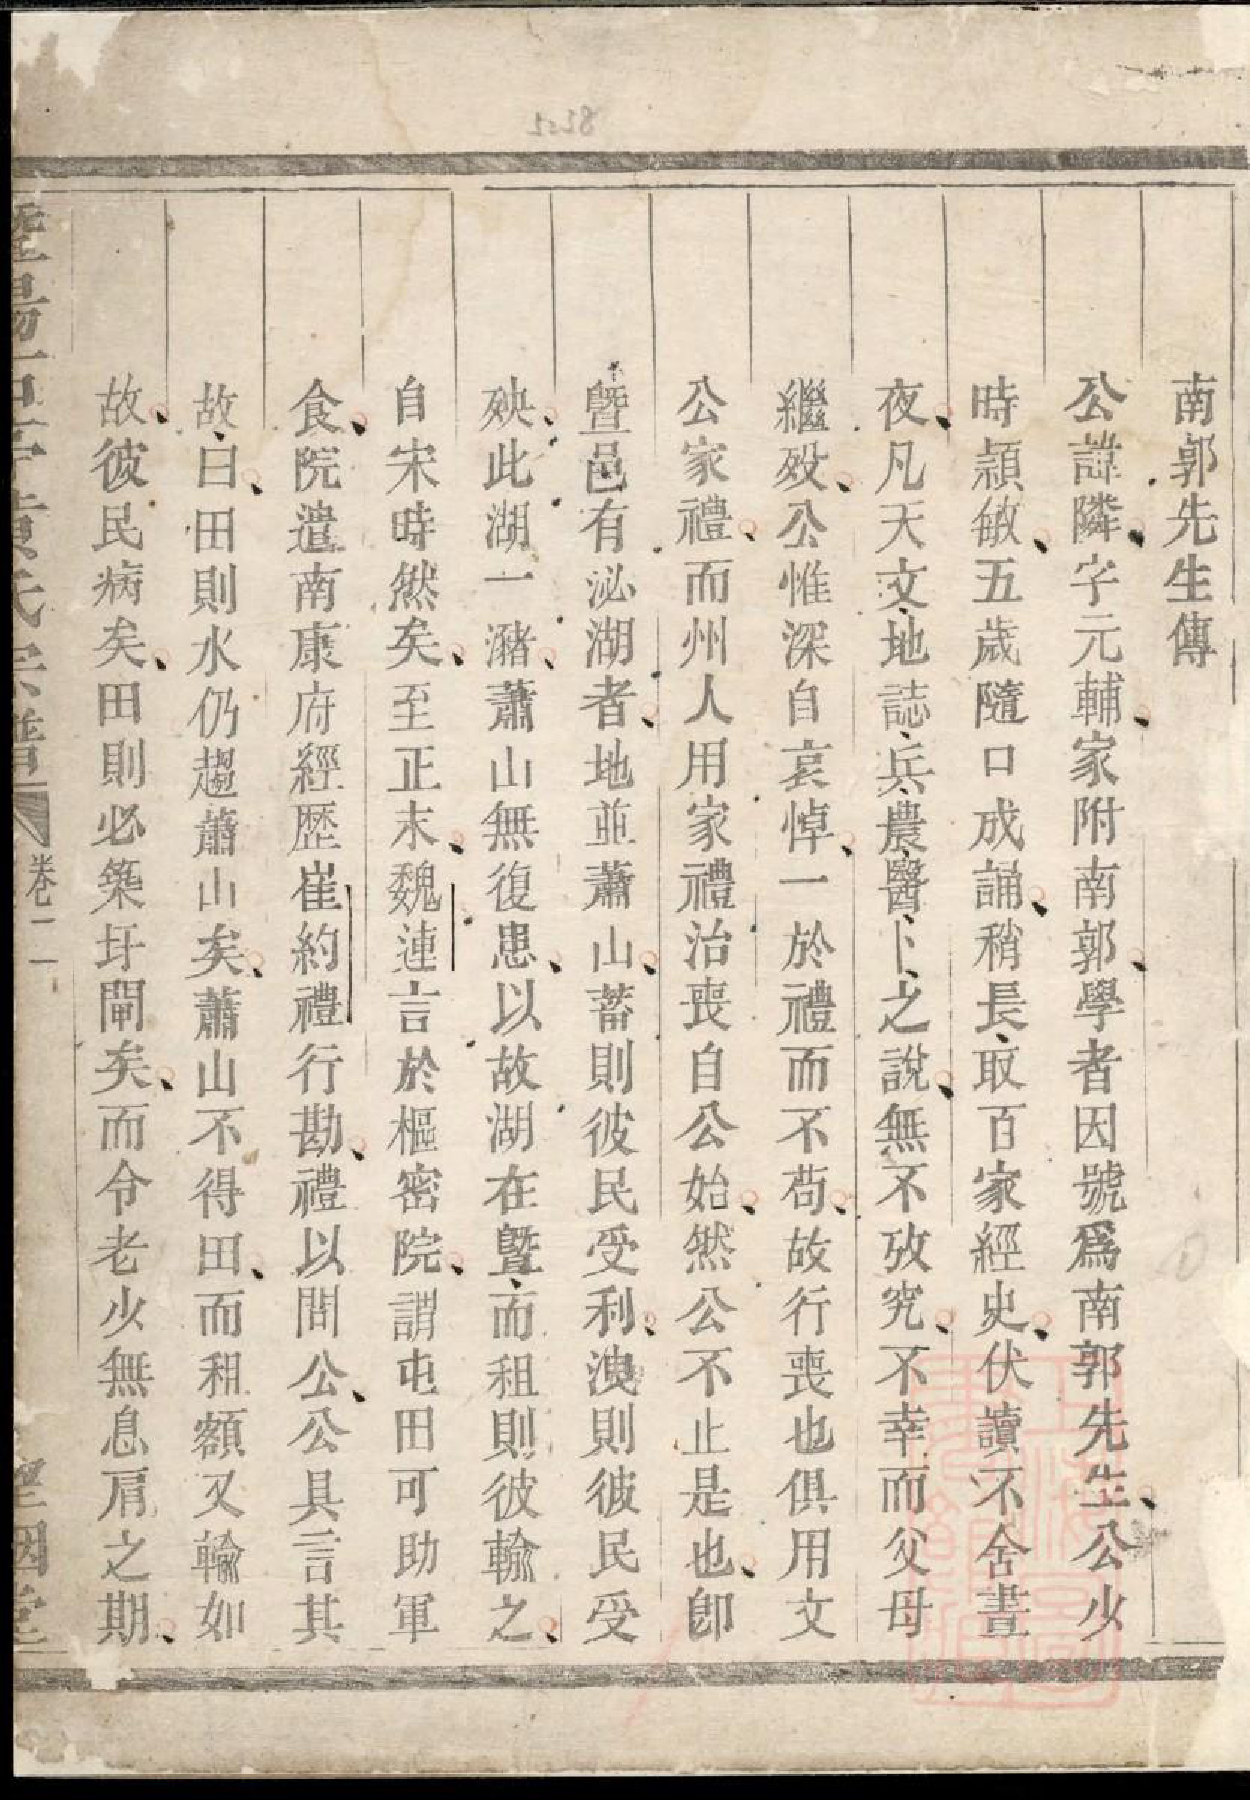 南郭先生傳
公諱隣字元輔家附南郭學者因號爲南郭先生公少
時頴敏五歲隨口成誦稍長取百家經史伏讀不舍晝
夜凡天文地誌兵農醫卜之說無不攷究不幸而父母
繼歿公惟深自哀悼一於禮而不苟故行喪也俱用文
公家禮而州人用家禮治喪自公始然公不止是也卽
曁邑有泌湖者地並蕭山蓄則彼民受利洩則彼民受
殃此湖一瀦蕭山無復患以故湖在曁而租則彼輸之
自宋時然矣至正末魏連言於樞密院謂屯田可助軍
食院遣南康府經歷崔約禮行勘禮以問公公具言其
故曰田則水仍趨蕭山矣蕭山不得田而租額又輸如
故彼民病矣田則必築圩閘矣而令老少無息肩之期
黄氏宗譜
卷二